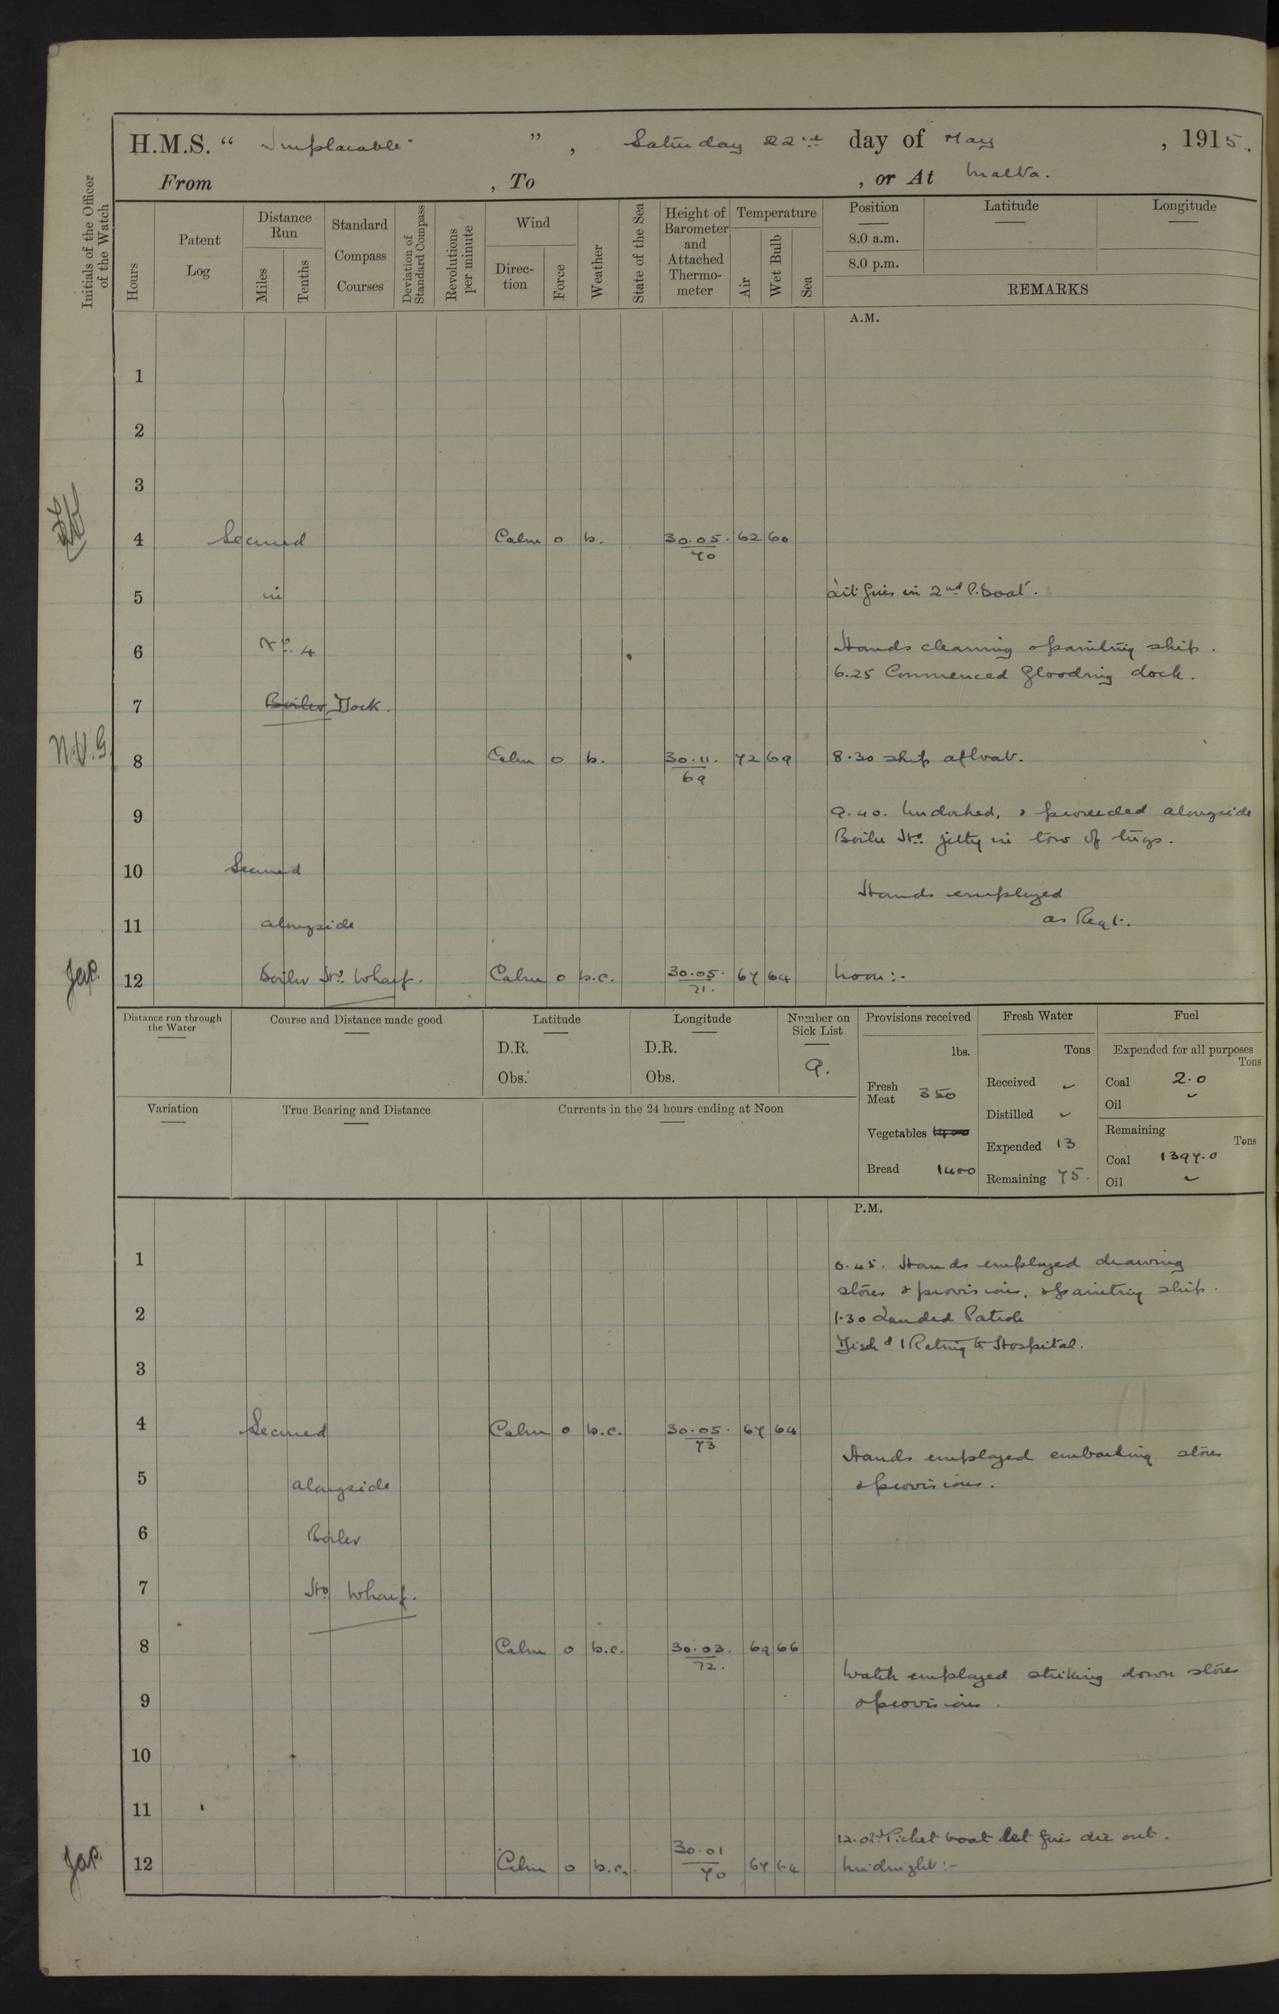 H.M.S. “ Implacable ” , Saturday 22nd day of May , 1915.
From , To , or At Malta.
Initials of the Officer of the Watch
Hours
Patent Log
Distance Run
Miles
Tenths
Standard Compass Courses
Deviation of Standard Compass
Revolutions per minute
Wind
Direc-tion
Force
Weather
State of the Sea
Height of Barometer and Attached Thermo-meter
Temperature
Air
Wet Bulb
Sea
Position
8.0 a.m.
8.0 p.m.
Latitude
Longitude
REMARKS
A.M.
1
2
3
4 Secured Calm 0 b. 30.05. 62 60
70
5 in Lit fires in 2nd P. boat.
6 No. 4 Hands cleaning & painting ship.
6.25 Commenced flooding dock.
7 Boiler Dock.
N.V.G. 8 Calm 0 b. 30.11. 72 69 8.30 ship afloat.
69
9 9.40. Undocked, & proceeded alongside
Boiler Ho. jetty in tow of tugs.
10 Secured
Hands employed
11 alongside as Reqt.
12 Boiler Ho. Wharf. Calm 0 b.c. 30.05. 67 64 Noon:-
71.
Distance run through the Water
Course and Distance made good
Latitude
D.R.
Obs.
Longitude
D.R.
Obs.
Number on Sick List
9.
Provisions received
lbs.
Fresh Meat 350
Vegetables 1400
Bread 1400
Fresh Water
Tons
Received ~
Distilled ~
Expended 13
Remaining 75.
Fuel
Expended for all purposes
Tons
Coal 2.0
Oil ~
Remaining
Tons
Coal 1397.0
Oil ~
Variation
True Bearing and Distance
Currents in the 24 hours ending at Noon
P.M.
1 0.45. Hands employed drawing
stores & provisions, & painting ship.
2 1.30 Landed Patrols
Disch'd 1 Rating to Hospital.
3
4 Secured Calm 0 b.c. 30.05. 67 64
73
Hands employed embarking stores
5 alongside & provisions.
6 Boiler
7 Ho. Wharf.
8 Calm 0 b.c. 30.03. 69 66
72.
Watch employed striking down stores
9 & provisions.
10
11
12.0. Picket boat let fires die out.
12 Calm 0 b.c. 30.01 67 64 Midnight:-
70